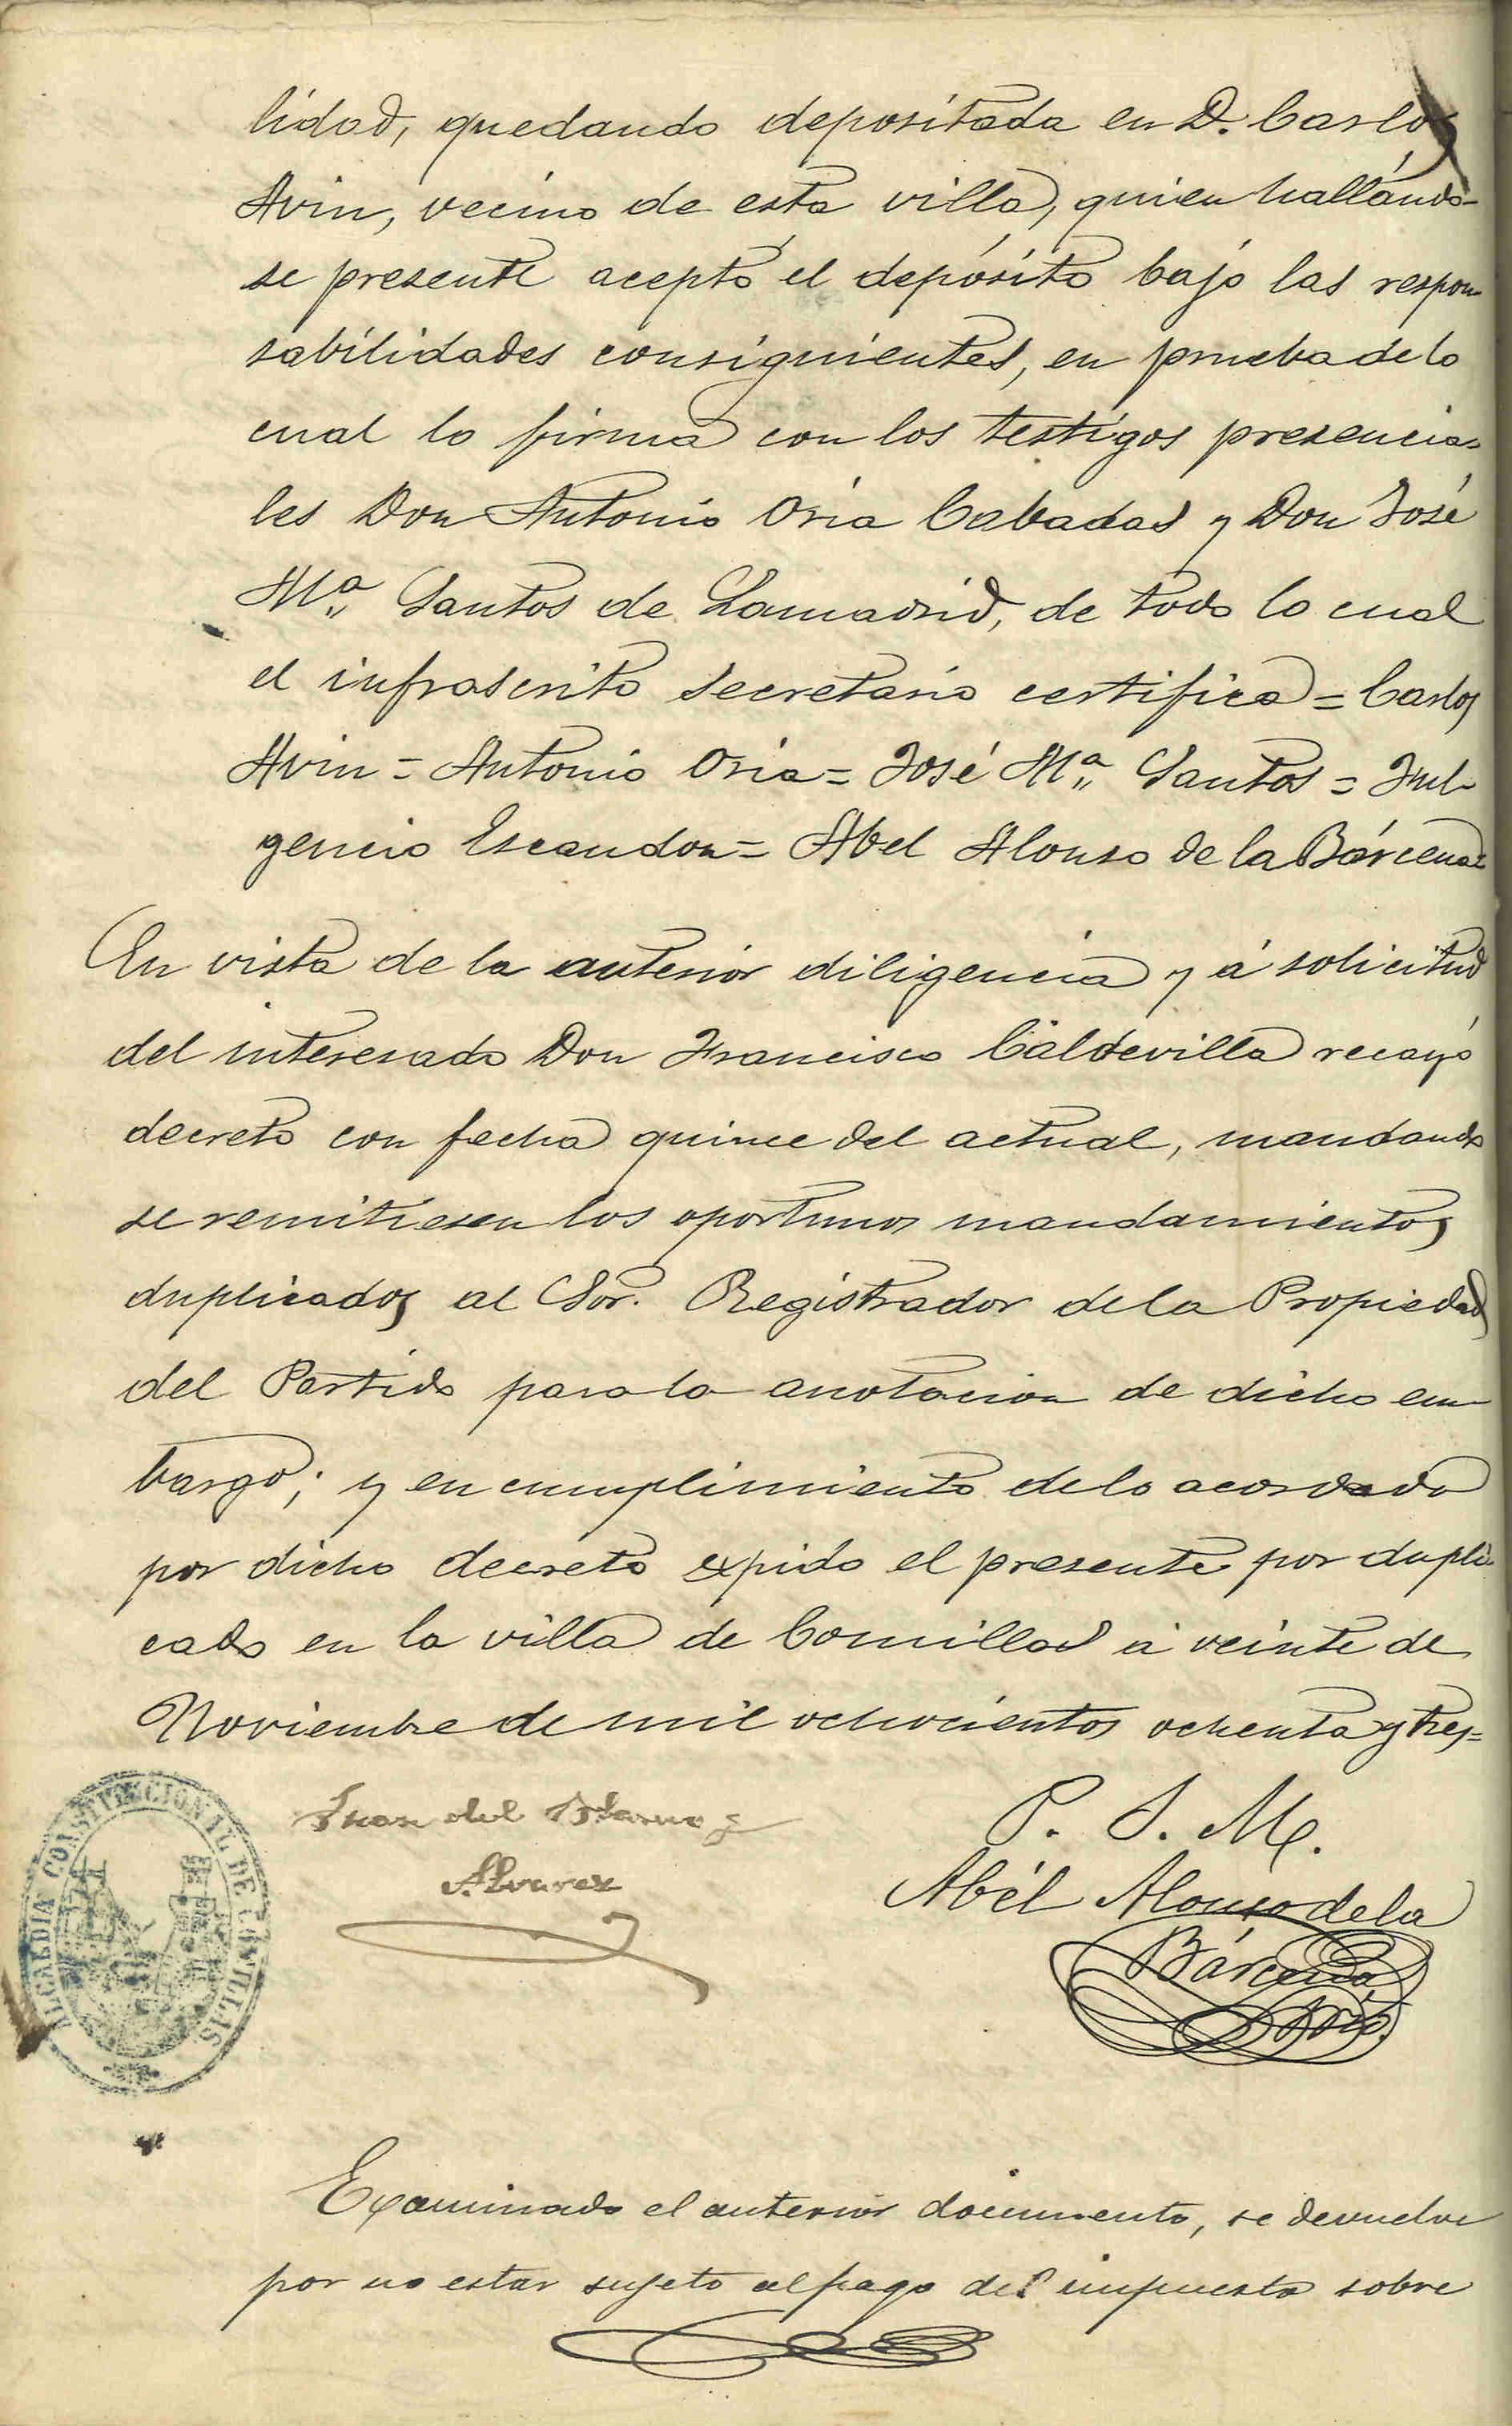 lidad, quedando depositada en D. Carlos
Avin, vecino de esta villa, quien hallándo-
se presente aceptó el depósito bajo las respon-
sabilidades consiguientes, en prueba de lo
cual lo firma con los testigos presencia-
les Don Antonio Oria Cabadas y Don José
Mª Santos de Lamadrid, de todo lo cual
el infrascrito secretario certifica = Carlos
Avin = Antonio Oria = José Mª Santos = Ful-
gencio Escandon = Abel Alonso de la Bárcena =
En vista de la anterior diligencia y á solicitud
del interesado Don Francisco Caldevilla recayó
decreto con fecha quince del actual, mandando
se remitiesen los oportunos mandamientos
duplicados al Sor. Registrador de la Propiedad
del Partido para la anotacion de dicho em-
bargo; y en cumplimiento de lo acordado
por dicho decreto expido el presente por dupli-
cado en la villa de Comillas á veinte de
Noviembre de mil ochocientos ochenta y tres =
Juan del
Alvarez
P. S. M.
Abél Alonso de la
Bárcena
Srio.
ALCALDIA CONSTITUCIONAL DE COMILLAS
Examinado el anterior documento, se devuelve
por no estar sujeto al pago del impuesto sobre